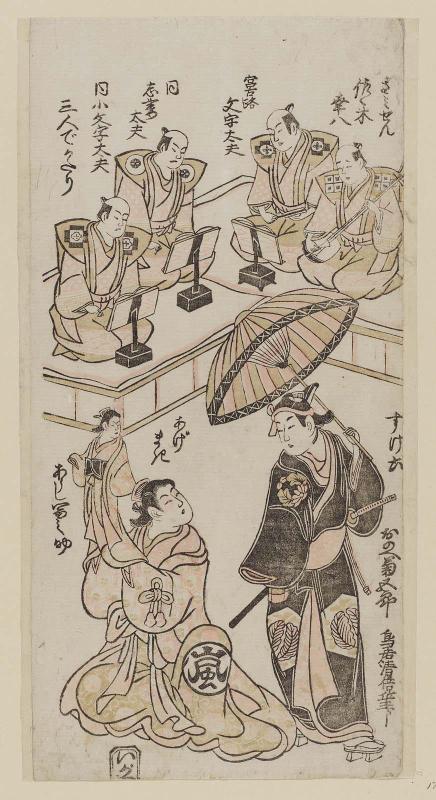 さみせん
佐々木
幸八
宮古路
文字太夫
同
志妻
太夫
同小文字太夫
三人でかたり
すけ六
おのへ菊五郎
鳥居清倍筆
あげ
まき
あらし冨之助
嵐
いが